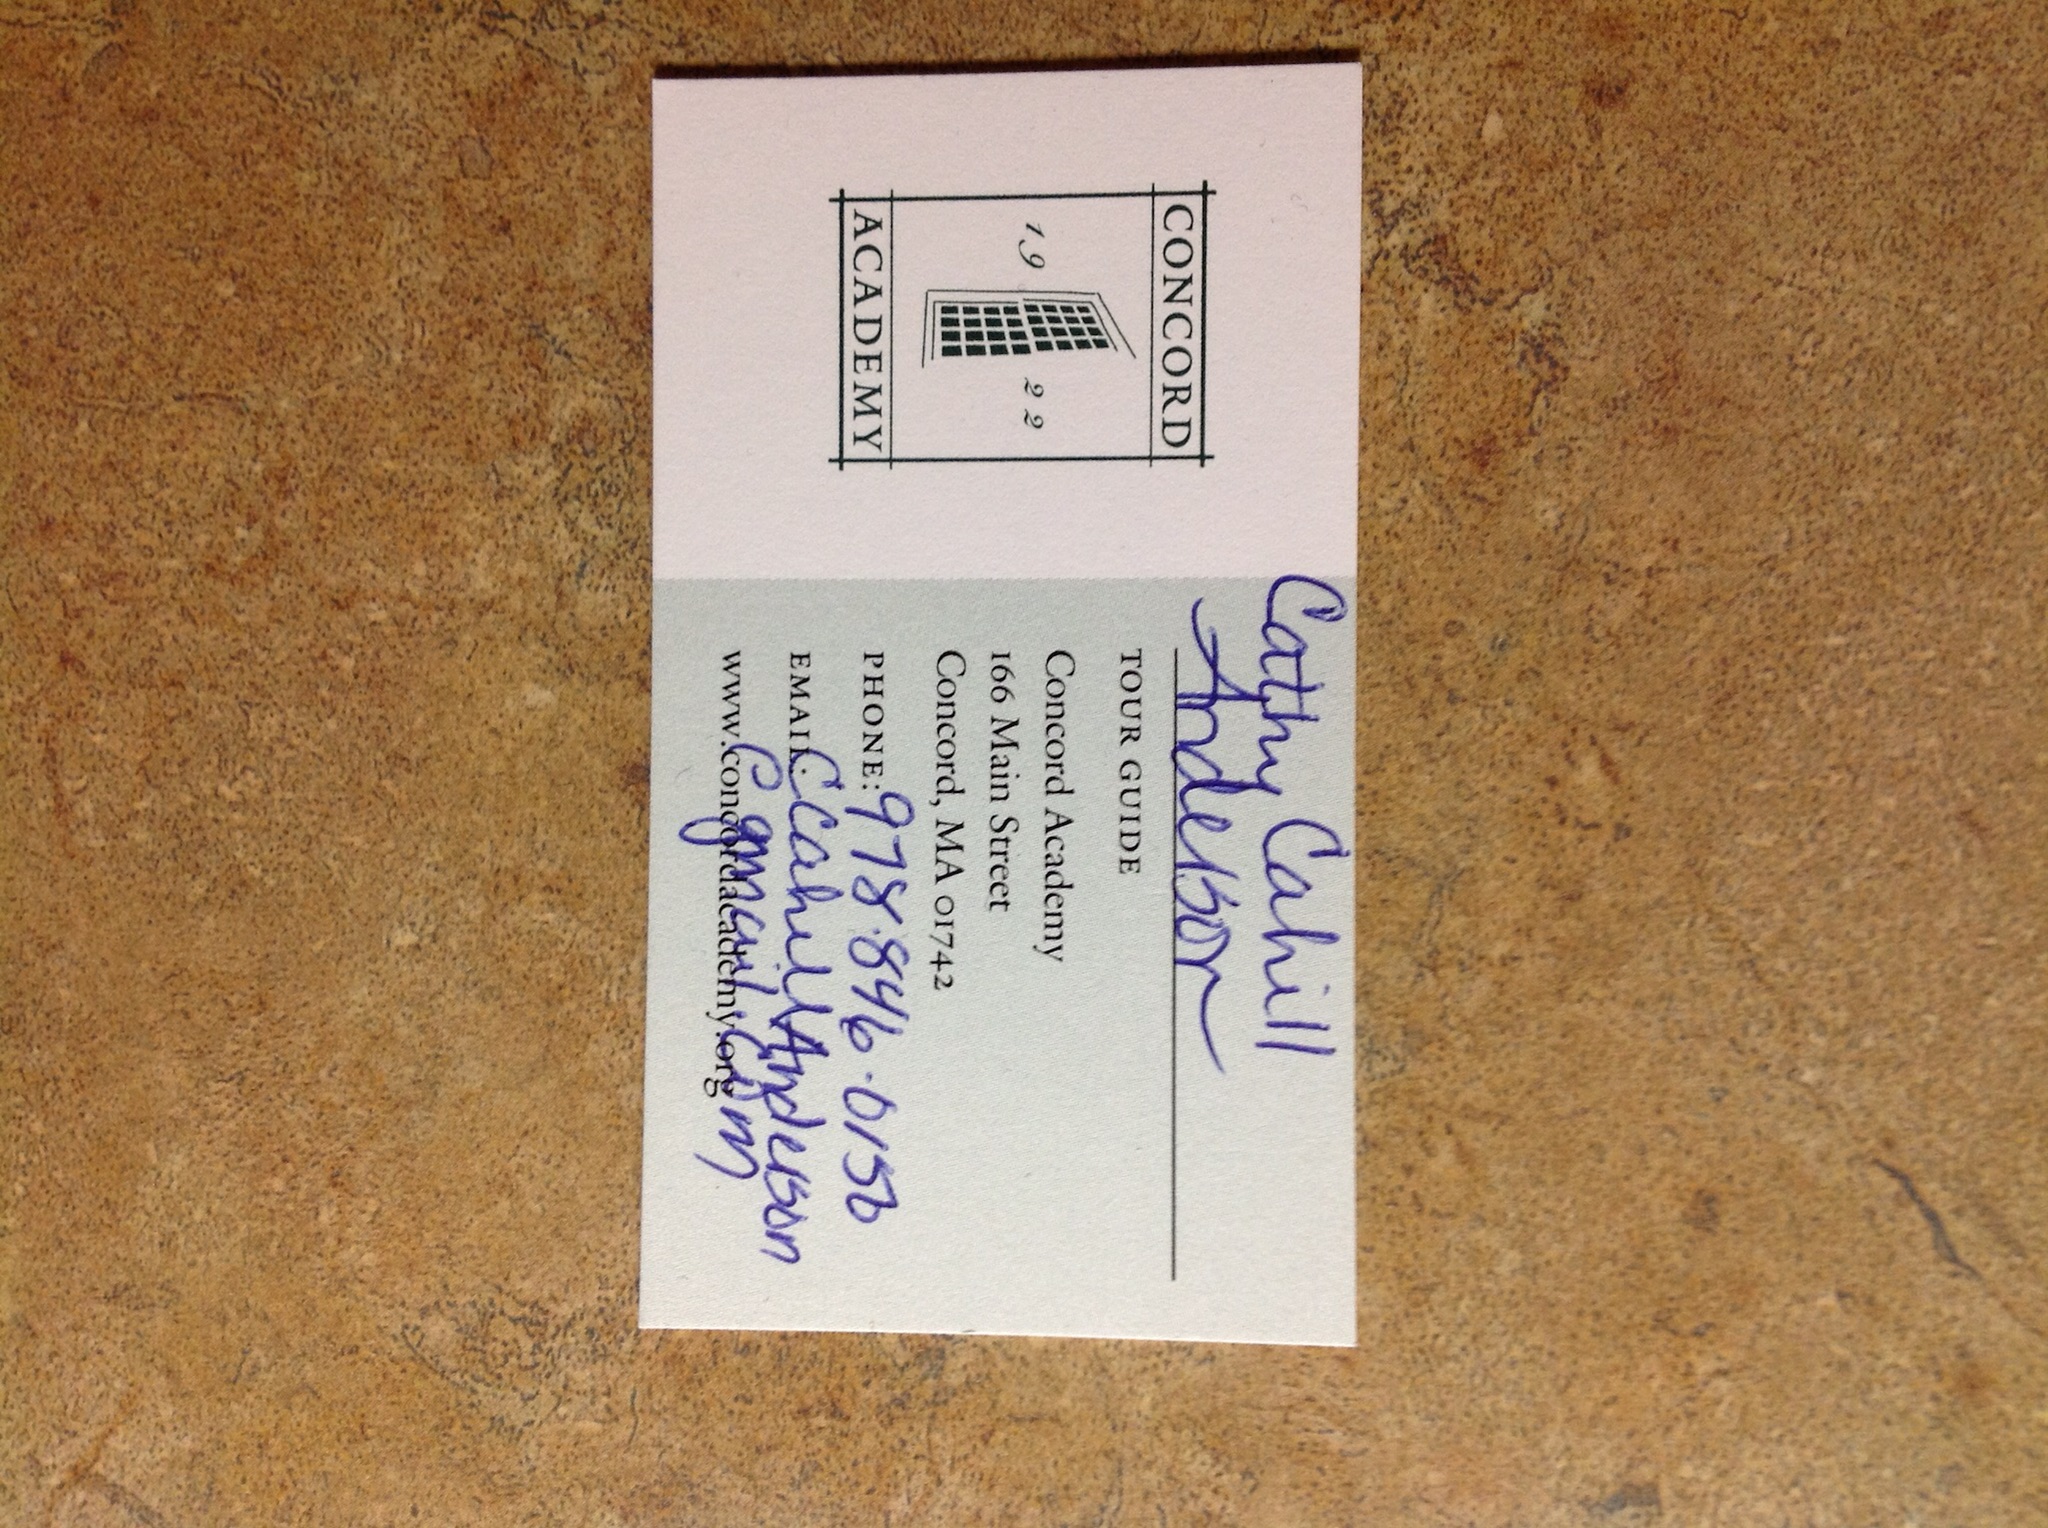 CONCORD
19 22
ACADEMY
Cathy Cahill
Anderson
TOUR GUIDE
Concord Academy
166 Main Street
Concord, MA 01742
PHONE: 978.846.0156
EMAIL: CCahillAnderson
@gmail.com
www.concordacademy.org